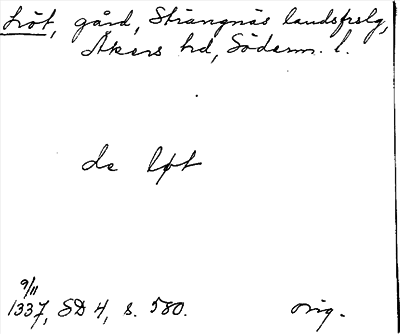 Löt, gård, Strängnäs landsförslg,
Åkers hd, Söderm. l.
de løt
9/11
1337, SD 4, s. 580. orig.